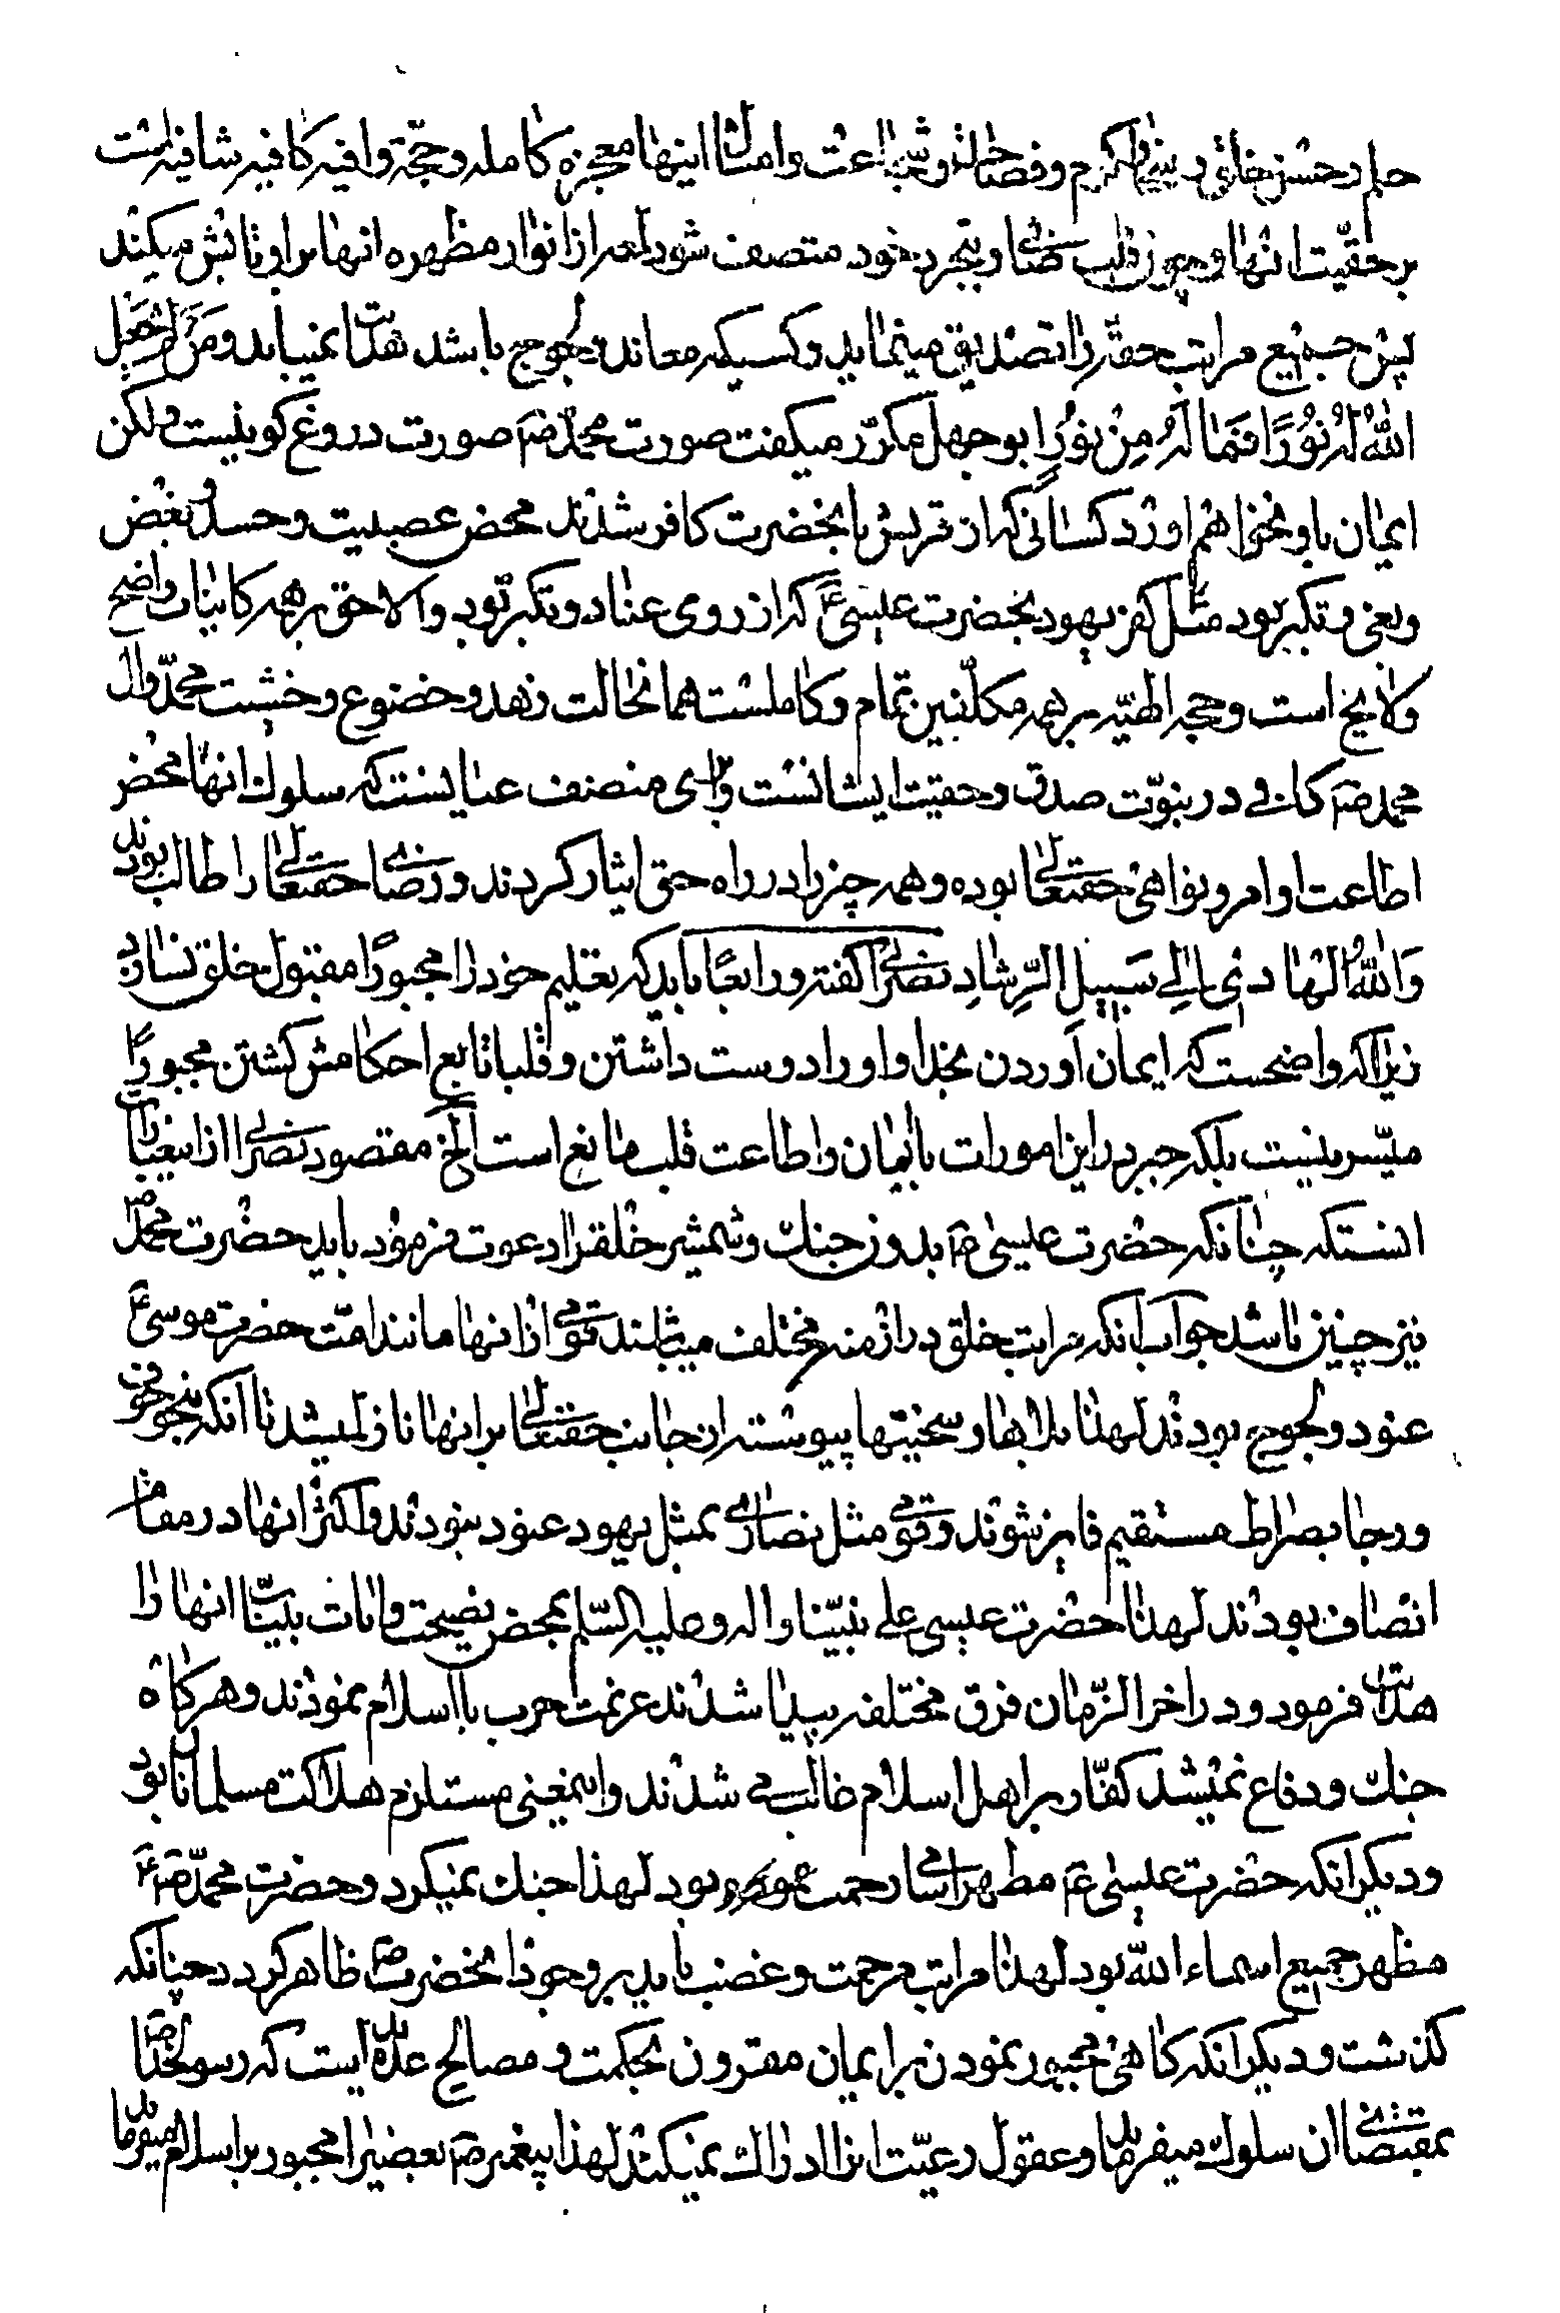 حلم و حسن خلق پیغمبر اکرم و فصاحت و شجاعت و امثال اینها معجزه کامله و حجّة وافیه کافیه شافیه است
بر حقیّت انها و چون قلب نصارا و بتجرد خود متصف شود لمعه از انوار مظهره انها بر او تابش میکند
پس جمیع مراتب حقه را تصدیق مینماید و کسیکه معاند و لجوج باشد هدایت نمییابد وَمَنْ لَمْ یَجْعَلِ
اللّٰهُ لَهُ نُوْرًا فَمَا لَهُ مِنْ نُوْرٍ ابوجهل مکرّر میکفت صورت محمد صَ صورت دروغ کو نیست ولکن
ایمان باو نخواهم اورد کسانی که از قریش بانحضرت کافر شدند محض عصبیت و حسد و بغض
و بغی و تکبّر بود مثل کفر یهود بحضرت عیسی عَ که از روی عناد و تکبر بود و الا حق بر همه کاینات واضح
و لایح است و حجه الهیّه بر همه مکلّفین تمام و کاملست همانحالت زهد و خضوع و خشیت محمّد و ال
محمد صَ کافی در نبوّت صدق و حقیت ایشانست و برای منصف عیانست که سلوک انها محض
اطاعت اوامر و نواهی حقتعالی بوده و همه چیز را در راه حق ایثار کردند و رضای حقتعالی را طالب بودند
وَاللّٰهُ الْهَادِی اِلٰی سَبِیلِ الرِّشَادِ نصرانی کفته و رابعًا باید که تعلیم خود را مجبورًا مقبول خلق نسازد
زیرا که واضحست که ایمان اوردن بخدا و او را دوست داشتن و قلبا تابع احکامش کشتن مجبورًا
میّسر نیست بلکه جبر در این امورات با ایمان و اطاعت قلب مانع است الخ مقصود نصرانی از این عبارات
انستکه چنانکه حضرت عیسی عَ بدون جنك و شمشیر خلق را دعوت فرمود باید حضرت محمد صَ
نیز چنین باشد جواب انکه مراتب خلق در ازمنه مختلف میباشند قومی از انها مانند امّت حضرت موسی عَ
عنود و لجوج بودند لهذا بلاها و سختیها پیوسته از جانب حقتعالی بر انها نازل میشد تا آنکه بنحو خوف
و رجا بصراط مستقیم فایز شوند و قومی مثل نصاری بمثل یهود عنود نبودند و اکثر انها در مقام
انصاف بودند لهذا حضرت عیسی علی نبیّنا و اله و علیه السّلم بمحض نصیحت و ایات بیّنات انها را
هدایت فرمود و در اخر الزّمان فرق مختلفه پیدا شدند عزیمت حرب با اسلام نمودند و هرکاه
جنك و دفاع نمیشد کفّار بر اهل اسلام غالب می شدند و اینمعنی مستلزم هلاکت مسلمانان بود
و دیکر انکه حضرت عیسی عَ مظهر اسامی رحمت بود لهذا جنك نمیکرد و حضرت محمّد صَ
مظهر جمیع اسماء اللّه بود لهذا مراتب مرحمت و غضب باید بر وجود انحضرت صَ ظاهر کردد چنانکه
کذشت و دیکر انکه کاهی مجبور نمودن بر ایمان مقرون بحکمت و مصالح عدیده ایست که رسولخدا صَ
بمقتضای ان سلوك میفرماید و عقول رعیّت انرا ادراك نمیکنند لهذا پیغمبر صَ بعضیرا مجبور بر اسلام میفرماید